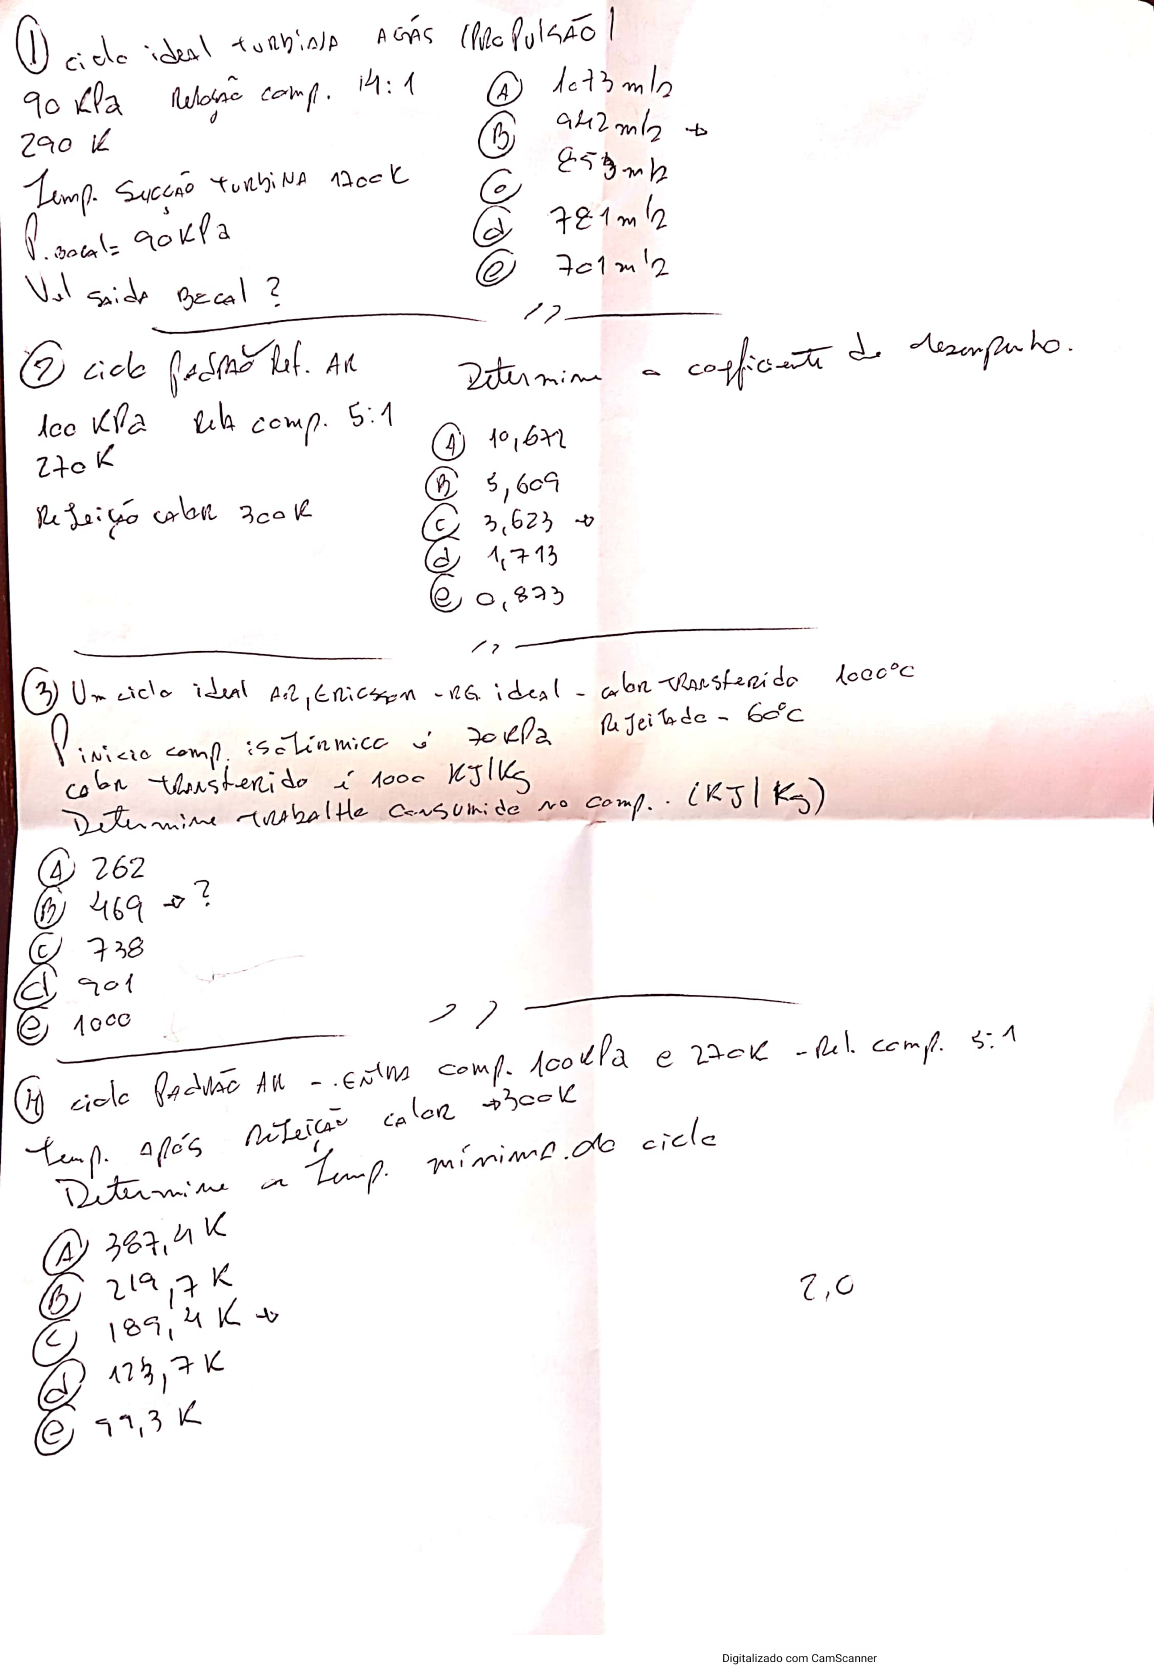 ① ciclo ideal turbina a gás (propulsão)
90 KPa Relação comp. 14:1
290 K
Temp. Sucção turbina 1700K
P. bocal = 90 KPa
Vel saida Bocal ?
Ⓐ 1073 m/s
Ⓑ 942 m/s →
Ⓒ 853 m/s
ⓓ 721 m/s
ⓔ 701 m/s
② ciclo padrão Ref. AR
100 KPa Rela comp. 5:1
270 K
Rejeição calor 300K
Determine o coeficiente de desempenho.
Ⓐ 10,672
Ⓑ 5,609
Ⓒ 3,623 →
ⓓ 1,713
ⓔ 0,873
③ Um ciclo ideal AR, Ericsson - RG ideal - calor transferido 1000°C
Rejeitado - 60°C
P inicio comp. isotérmica é 70 KPa
calor transferido é 1000 KJ/Kg
Determine trabalho consumido no comp.. (KJ/Kg)
Ⓐ 262
Ⓑ 469 → ?
Ⓒ 738
ⓓ 901
ⓔ 1000
④ ciclo Padrão AR - .Entra comp. 100 KPa e 270K - Rel. comp. 5:1
temp. após rejeição calor → 300K
Determine a Temp. mínima do ciclo
Ⓐ 387,4 K
Ⓑ 219,7 K
Ⓒ 189,4 K →
ⓓ 123,7 K
ⓔ 99,3 K
2,0
Digitalizado com CamScanner